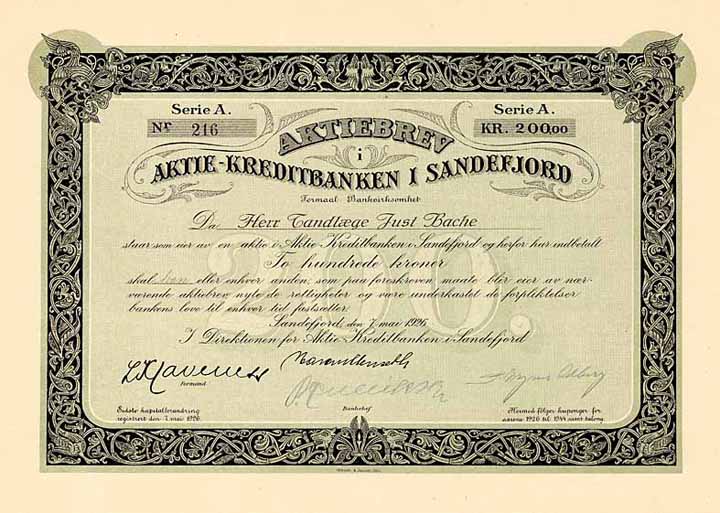 Serie A.
Nr 216
AKTIEBREV
Serie A.
KR. 200,00
i
AKTIE-KREDITBANKEN I SANDEFJORD
Formaal Bankvirksomhet
Da Herr Tandlæge Just Bache
staar som eier av en aktie i Aktie Kreditbanken i Sandefjord og herfor har indbetalt
To hundrede kroner
skal han eller enhver anden, som paa foreskreven maate blir eier av nær-
værende aktiebrev nyte de rettigheter og være underkastet de forpliktelser
bankens love til enhver tid fastsætter.
200.
Sandefjord, den 7. mai 1926
I Direktionen for Aktie Kreditbanken i Sandefjord
Formand
Sidste kapitalforandring
registrert den 7. mai 1926.
Bankchef
Hermed følger kuponger for
aarene 1926 til 1944 samt talong.